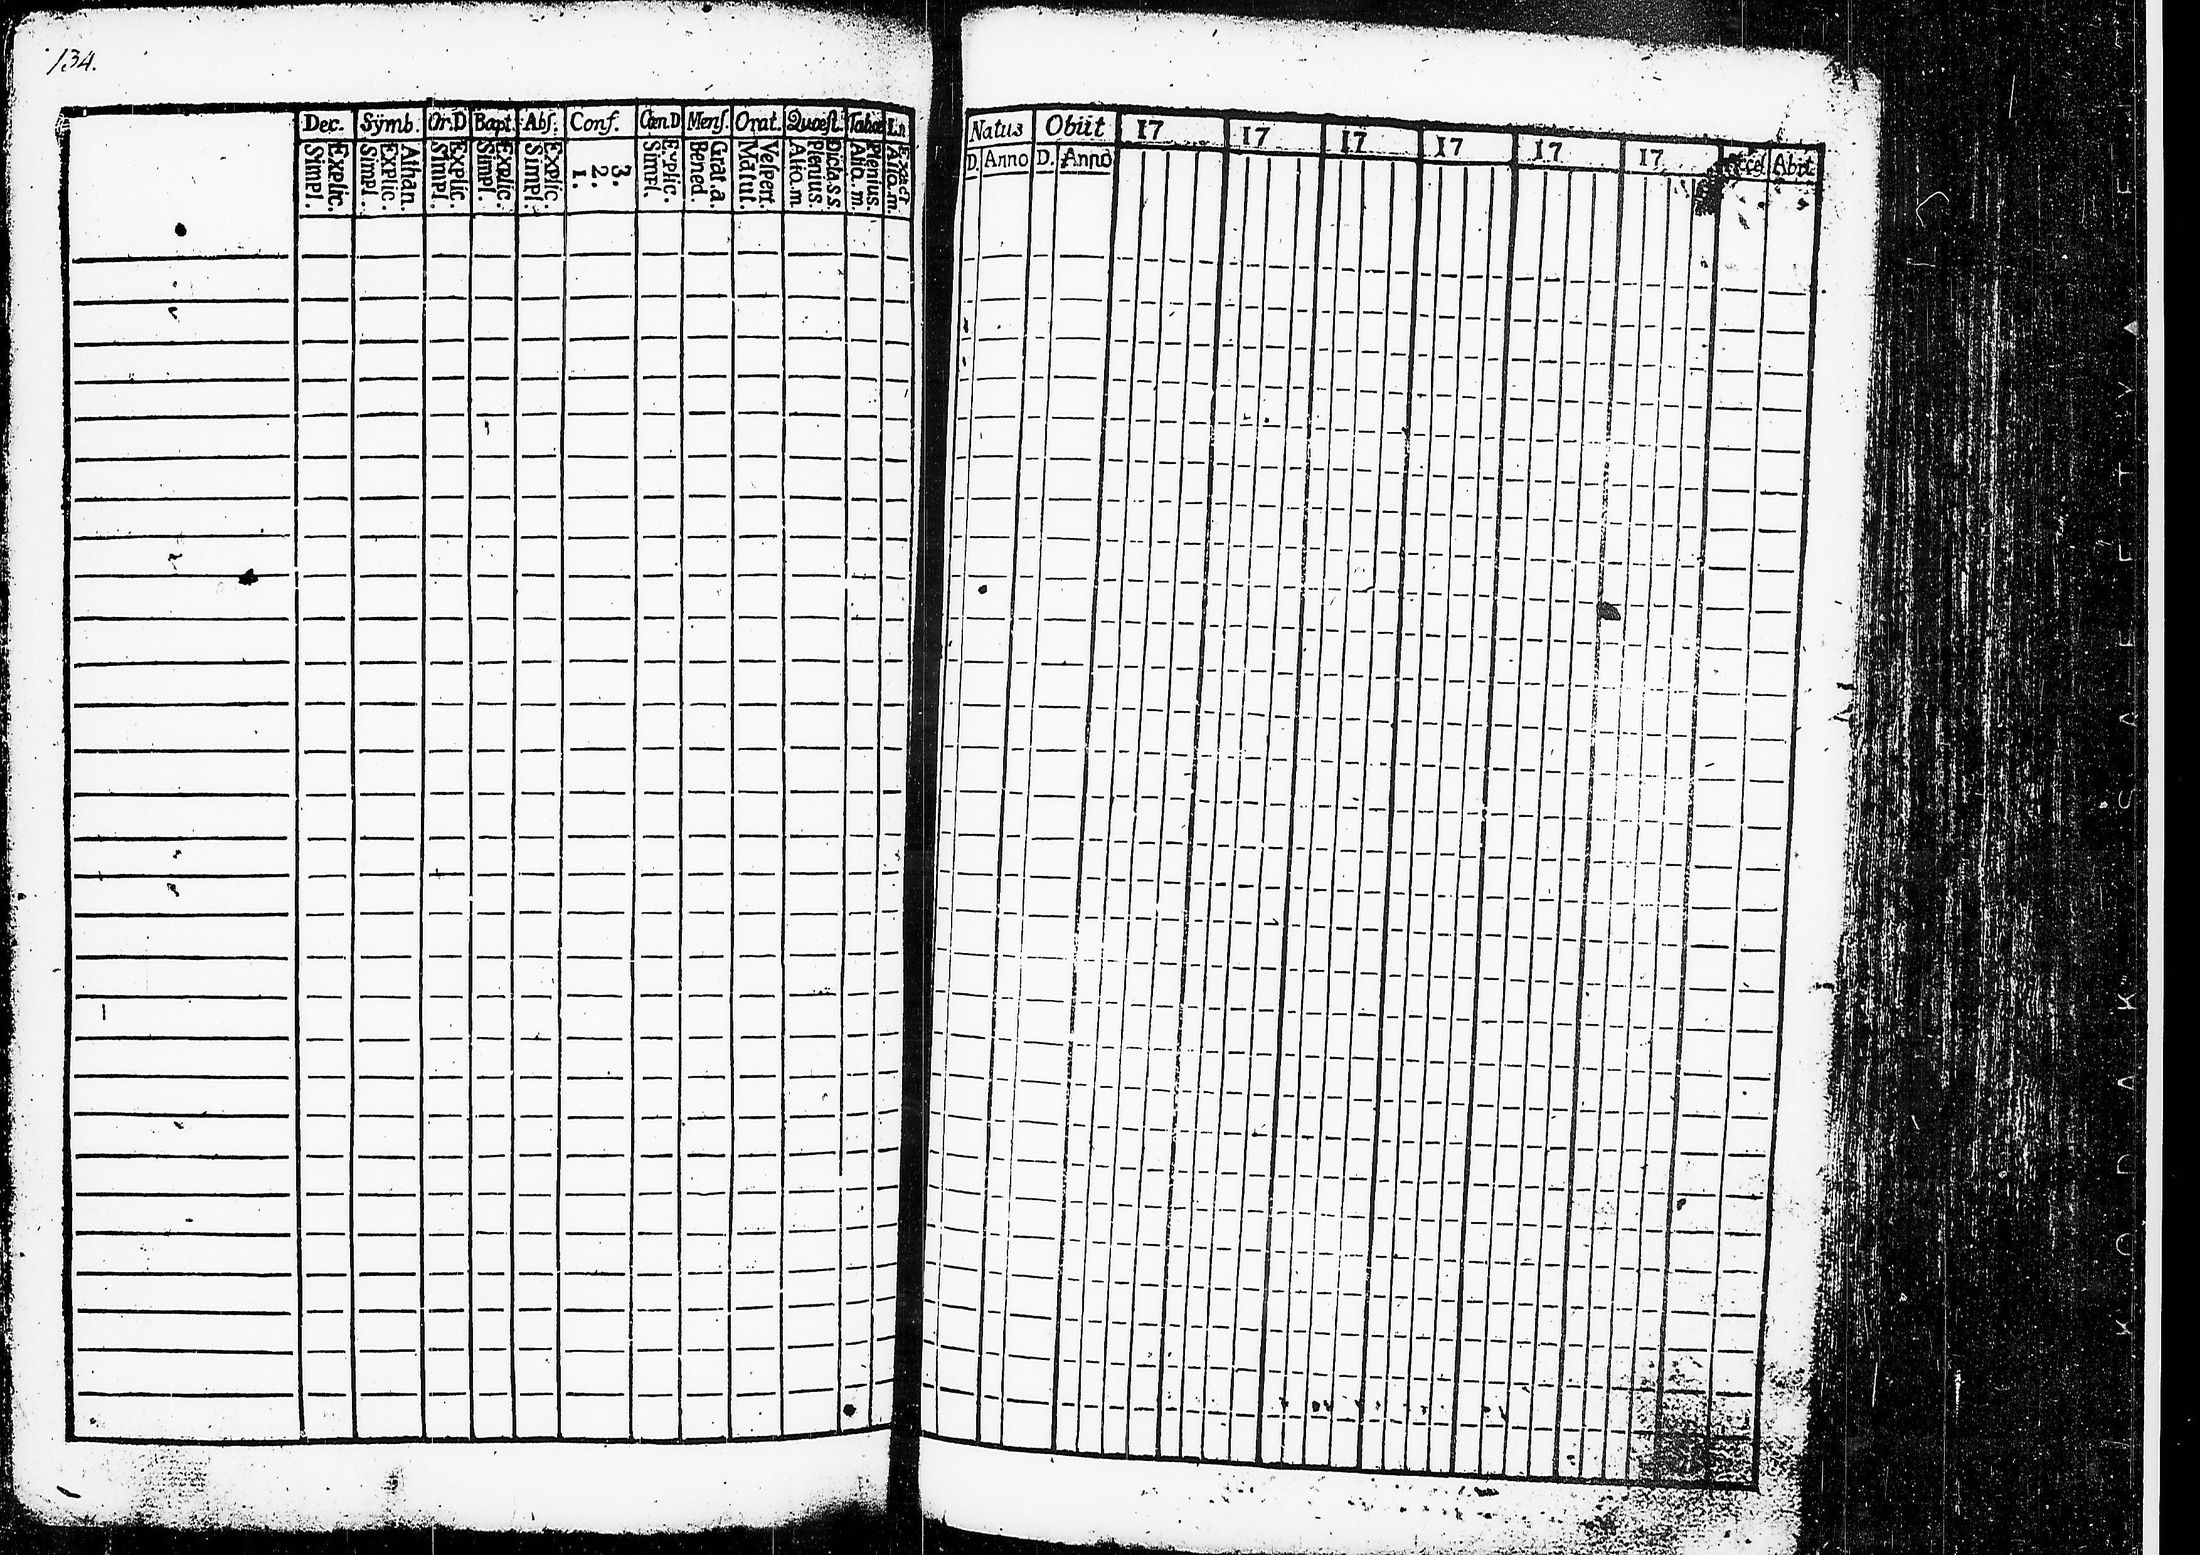 134.
Dec. Sÿmb. Or.D Bapt. Abs. Conf. Cœn.D Mens. Orat. Quæst. Tabæ
Simpl. Explic. Simpl. Explic. Athan. Simpl. Explic. Simpl. Explic. Simpl. Explic. 1. 2. 3. Simpl. Explic. Bened. Grat.a. Matut. Vespert. Aliq.m Plenius. Dicta.s.s. Aliq.m. Plenius. Aliq.m. Exact
Natus Obiit 17 17 17 17 17 17 Abit
D. Anno D. Anno
KODAK SAFETY